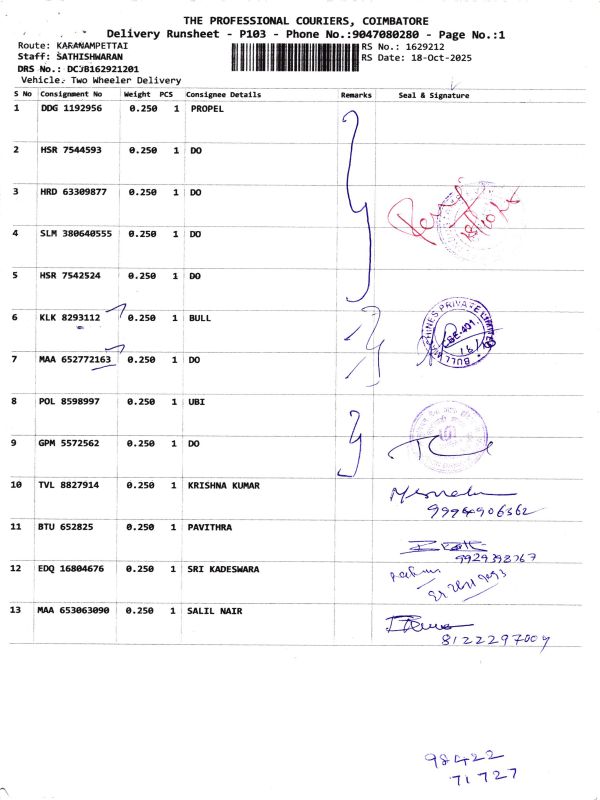 THE PROFESSIONAL COURIERS, COIMBATORE
Delivery Runsheet - P103 - Phone No.:9047080280 - Page No.:1
Route: KARANAMPETTAI RS No.: 1629212
Staff: SATHISHWARAN RS Date: 18-Oct-2025
DRS No.: DCJB162921201
Vehicle: Two Wheeler Delivery
S No Consignment No Weight PCS Consignee Details Remarks Seal & Signature
1 DDG 1192956 0.250 1 PROPEL
2 HSR 7544593 0.250 1 DO
3 HRD 63309877 0.250 1 DO
18/10/25
4 SLM 380640555 0.250 1 DO
5 HSR 7542524 0.250 1 DO
6 KLK 8293112 0.250 1 BULL
BULL MACHINES PRIVATE LIMITED
CBE-401
7 MAA 652772163 0.250 1 DO
8 POL 8598997 0.250 1 UBI
9 GPM 5572562 0.250 1 DO
10 TVL 8827914 0.250 1 KRISHNA KUMAR
9994906362
11 BTU 652825 0.250 1 PAVITHRA
12 EDQ 16804676 0.250 1 SRI KADESWARA
13 MAA 653063090 0.250 1 SALIL NAIR
8122297009
98422
71727